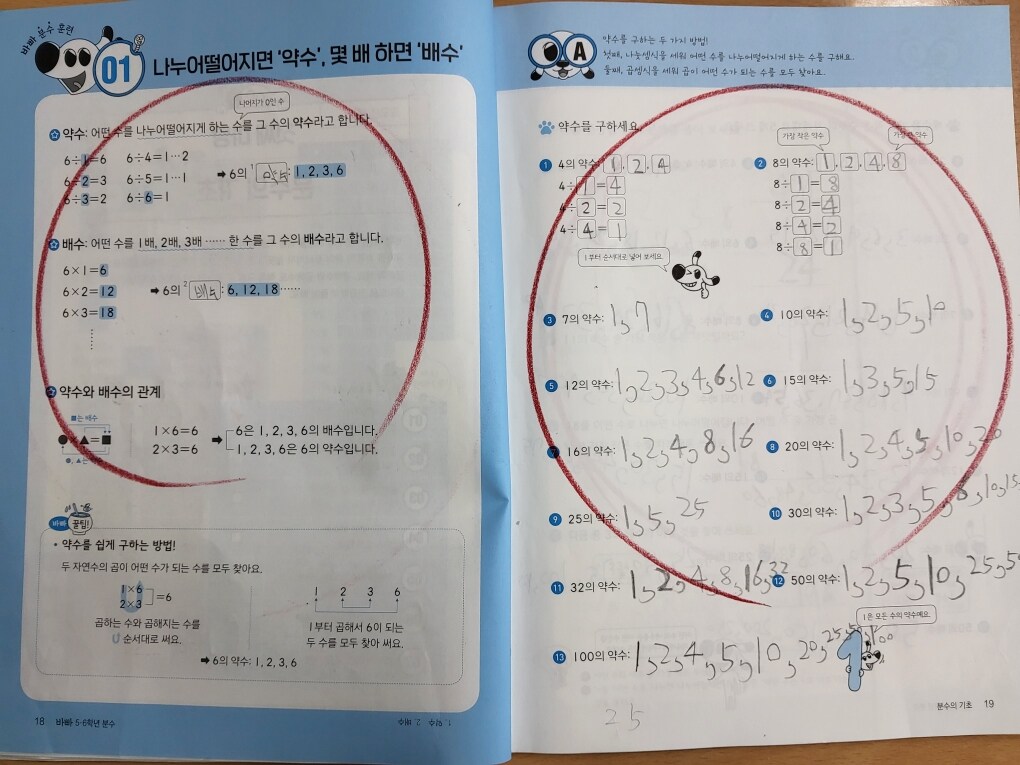 바빠 분수 훈련
01 나누어떨어지면 '약수', 몇 배 하면 '배수'
나머지가 0인 수
약수: 어떤 수를 나누어떨어지게 하는 수를 그 수의 약수라고 합니다.
6÷1=6 6÷4=1…2
6÷2=3 6÷5=1…1
6÷3=2 6÷6=1
➡ 6의 1 약수: 1, 2, 3, 6
배수: 어떤 수를 1배, 2배, 3배 …… 한 수를 그 수의 배수라고 합니다.
6×1=6
6×2=12
6×3=18
➡ 6의 2 배수: 6, 12, 18……
약수와 배수의 관계
■는 배수
●×▲=■
1×6=6
2×3=6
➡ 6은 1, 2, 3, 6의 배수입니다.
1, 2, 3, 6은 6의 약수입니다.
바빠 꿀팁!
• 약수를 쉽게 구하는 방법!
두 자연수의 곱이 어떤 수가 되는 수를 모두 찾아요.
1×6
2×3
=6
곱하는 수와 곱해지는 수를
U 순서대로 써요.
1 2 3 6
1부터 곱해서 6이 되는
두 수를 모두 찾아 써요.
➡ 6의 약수: 1, 2, 3, 6
18 바빠 5·6학년 분수
1. 약수 2. 배수
A
약수를 구하는 두 가지 방법!
첫째, 나눗셈식을 세워 어떤 수를 나누어떨어지게 하는 수를 구해요.
둘째, 곱셈식을 세워 곱이 어떤 수가 되는 수를 모두 찾아요.
약수를 구하세요.
1 4의 약수: 1, 2, 4
4÷1=4
4÷2=2
4÷4=1
1부터 순서대로 넣어 보세요.
가장 작은 약수
가장 큰 약수
2 8의 약수: 1, 2, 4, 8
8÷1=8
8÷2=4
8÷4=2
8÷8=1
3 7의 약수: 1, 7
4 10의 약수: 1, 2, 5, 10
5 12의 약수: 1, 2, 3, 4, 6, 12
6 15의 약수: 1, 3, 5, 15
7 16의 약수: 1, 2, 4, 8, 16
8 20의 약수: 1, 2, 4, 5, 10, 20
9 25의 약수: 1, 5, 25
10 30의 약수: 1, 2, 3, 5, 6, 10, 15
11 32의 약수: 1, 2, 4, 8, 16, 32
12 50의 약수: 1, 2, 5, 10, 25, 50
1은 모든 수의 약수예요.
13 100의 약수: 1, 2, 4, 5, 10, 20, 25, 50, 100
25
분수의 기초 19